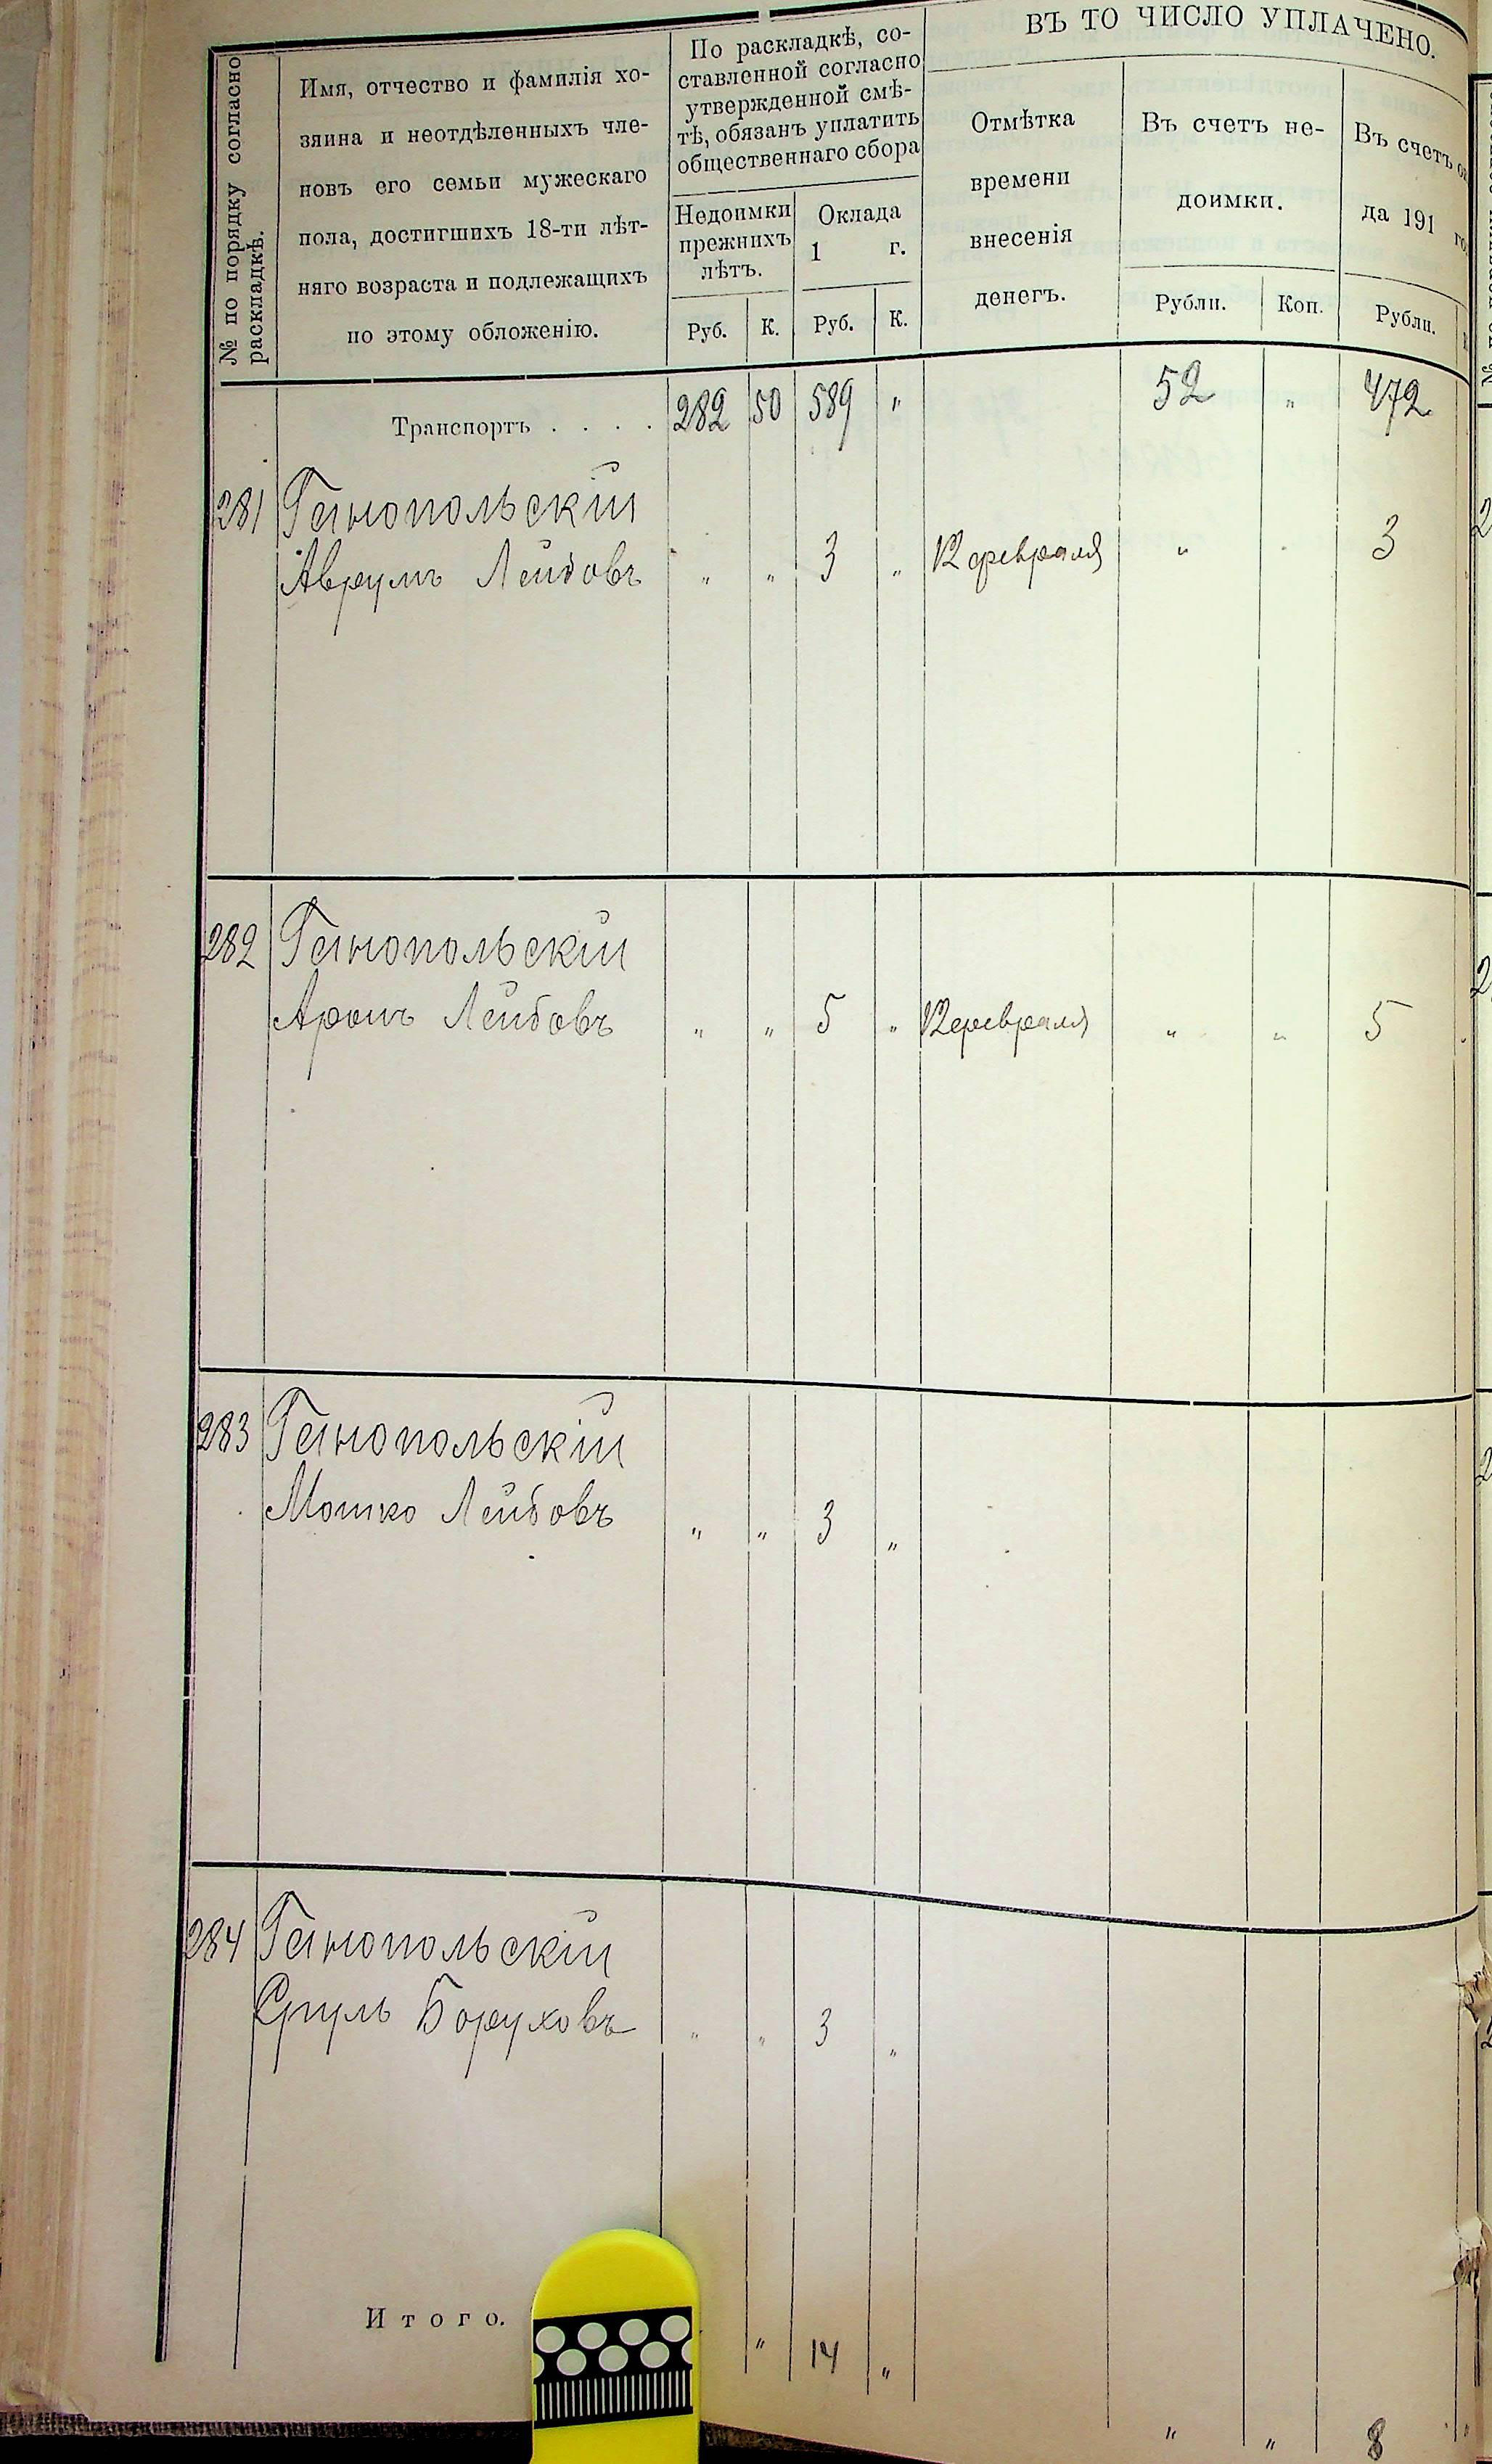 № по порядку согласно
раскладкѣ.
Имя, отчество и фамилія хо-
зяина и неотдѣленныхъ чле-
новъ его семьи мужескаго
пола, достигшихъ 18-ти лѣт-
няго возраста и подлежащихъ
по этому обложенію.
По раскладкѣ, со-
ставленной согласно
утвержденной смѣ-
тѣ, обязанъ уплатить
общественнаго сбора
Недоимки
прежнихъ
лѣтъ.
Оклада
1 г.
Руб. К. Руб. К.
ВЪ ТО ЧИСЛО УПЛАЧЕНО.
Отмѣтка
времени
внесенія
денегъ.
Въ счетъ не-
доимки.
Рубли. Коп.
Въ счетъ
да 191
Рубли.
Транспортъ . . . . 282 50 589 " 52 " 472
281 Ганопольскій
Аврумъ Лейбовъ " " 3 " 12 февраля " " 3
282 Ганопольскій
Аронъ Лейбовъ " " 5 " 12 февраля " " 5
283 Ганопольскій
Мошко Лейбовъ " " 3 "
284 Ганопольскій
Сруль Боруховъ " " 3 "
Итого. " 14 "
" " 8